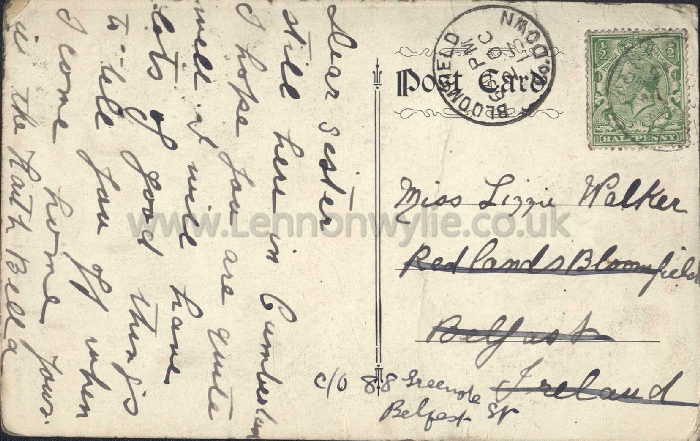 Dear Sister
still here in Cumberland
I hope you are quite
well I will have
lots of good things
to tell you off when
I come home yours
in the Bella
Post Card
BLOOMFIELD
CO. DOWN
PM
13
HALF PENNY
Miss Lizzie Walker
Redlands Bloomfield
Belfast
Ireland
c/o 88
Belfast
www.Lennonwylie.co.uk